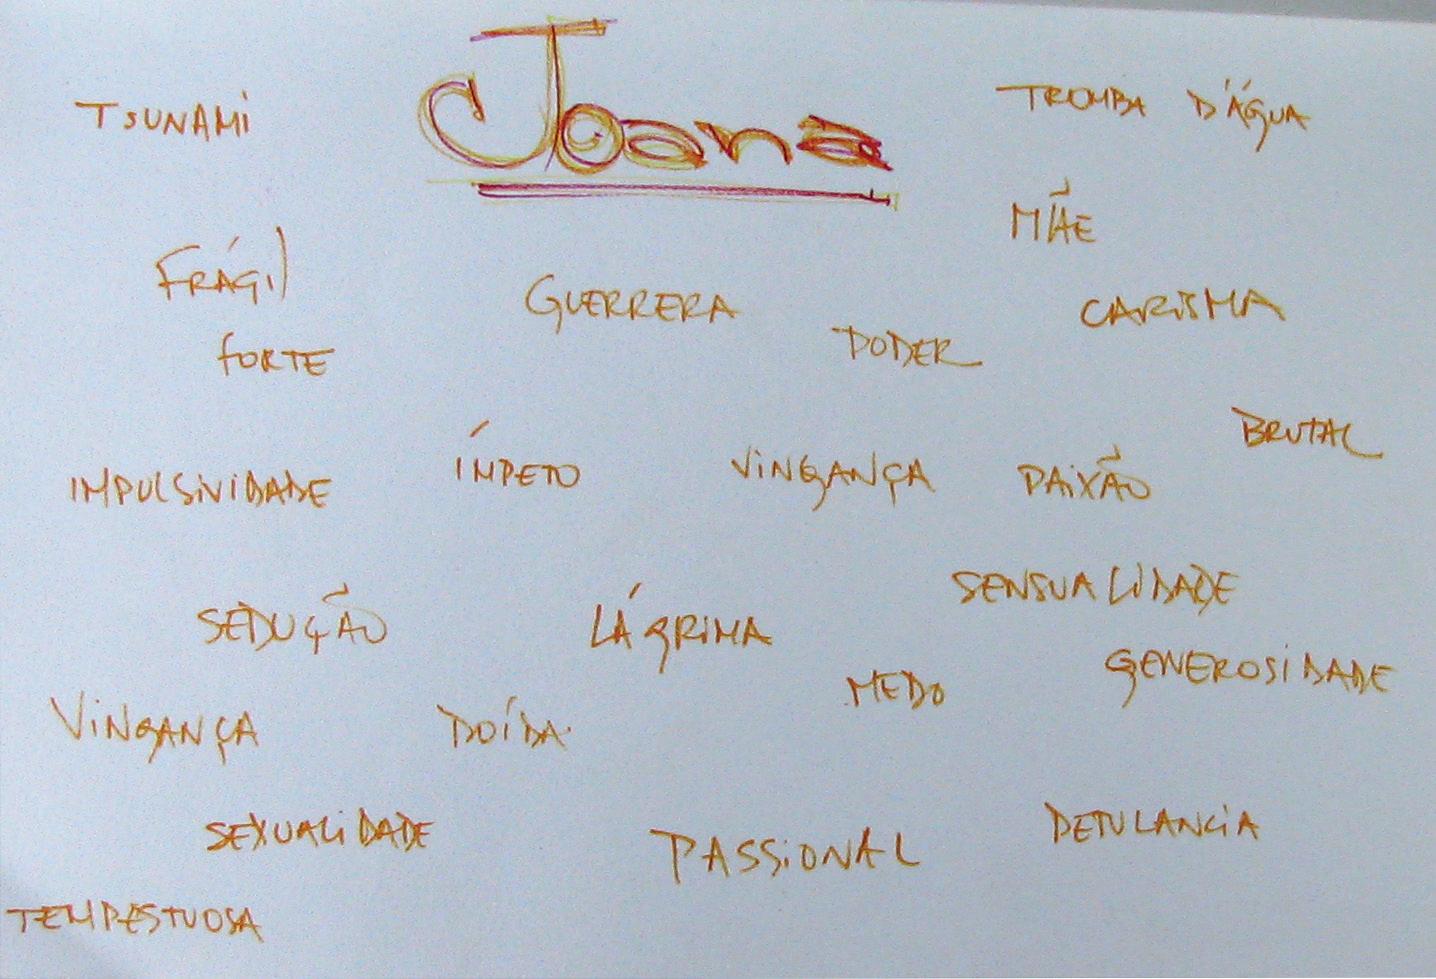 Joana
TSUNAMI
TROMBA D'ÁGUA
MÃE
FRÁGIL
GUERRERA
CARISMA
FORTE
PODER
BRUTAL
IMPULSIVIDADE
ÍMPETO
VINGANÇA
PAIXÃO
SEDUÇÃO
LÁGRIMA
SENSUALIDADE
GENEROSIDADE
MEDO
VINGANÇA
DOÍDA
SEXUALIDADE
PASSIONAL
PETULANCIA
TEMPESTUOSA